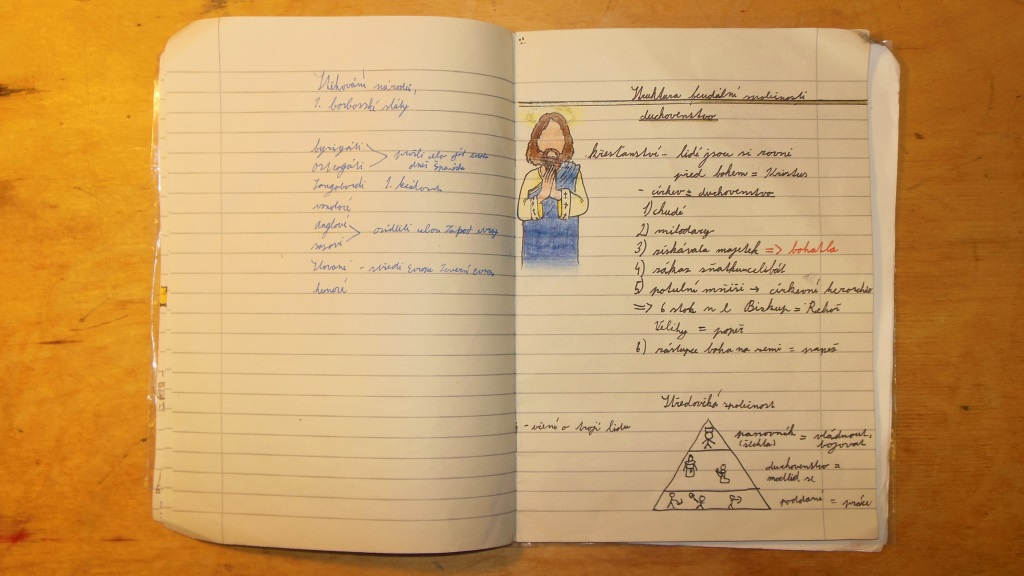 Stěhování národů,
1. barbarské státy
byzigóti
ostrogóti
prošli celo
dnes Španěls
Longobardi I. králov
vandové
anglové
sasové
osídlili celou Západ evrop
Slované - střední Evropa Severní evrop
hunové
Struktura feudální společnosti
duchovenstvo
křesťanství - lidé jsou si rovni
před bohem = Kristus
- církev = duchovenstvo
1) chudé
2) milodary
3) získávala majetek => bohatla
4) zákaz sňatku=celibát
5) potulní mniši → církevní
=> 6 stol n l Biskup = Řehoř
Veliký = papež
6) zástupce boha na zemi = papež
Středověká společnost
- učení o trojí lidu
panovník = vládnout,
(šlechta) bojovat
duchovenstvo =
modlid se
poddaní = práce